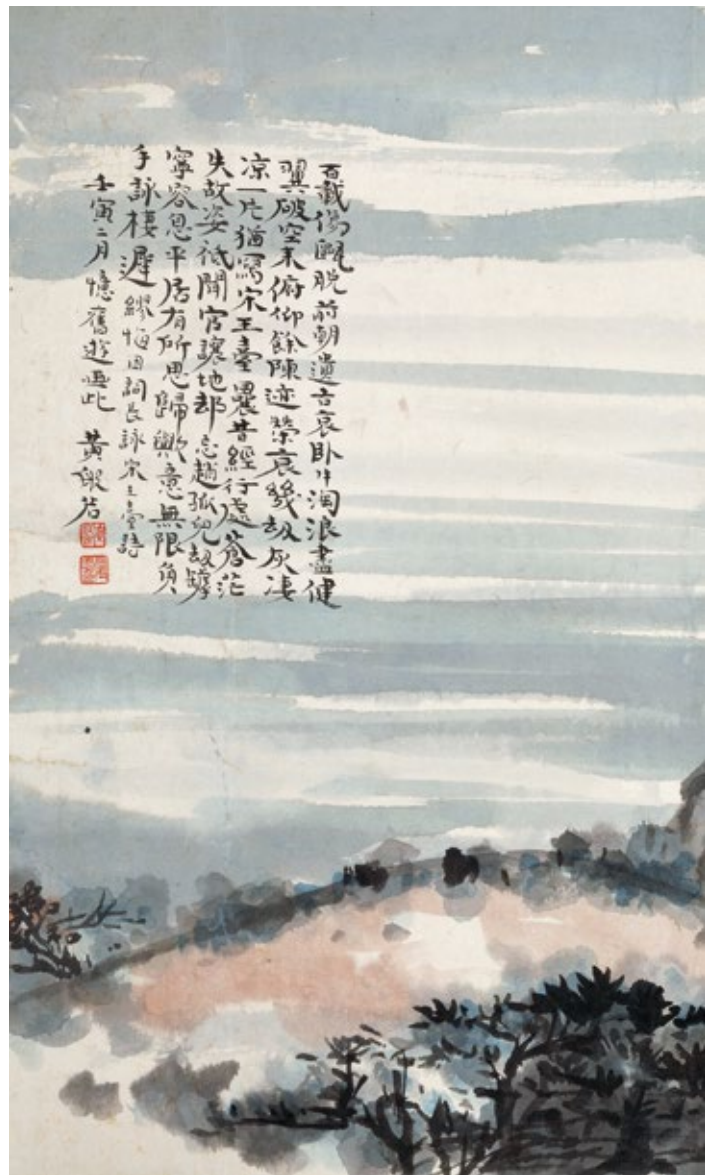 百載傷甌脫前朝遺古哀臥牛淘浪盡健
翼破空來俯仰餘陳迹榮衰幾劫灰淒
涼一片猶寫宋王臺曩昔經行處蒼茫
失故姿祗聞官讓地却忘趙孤兒劫罅
寧容息平居有所思歸歟意無限負
手詠棲遲 繆悔因詞長詠宋王臺詩
壬寅二月憶舊遊畫此 黃般若